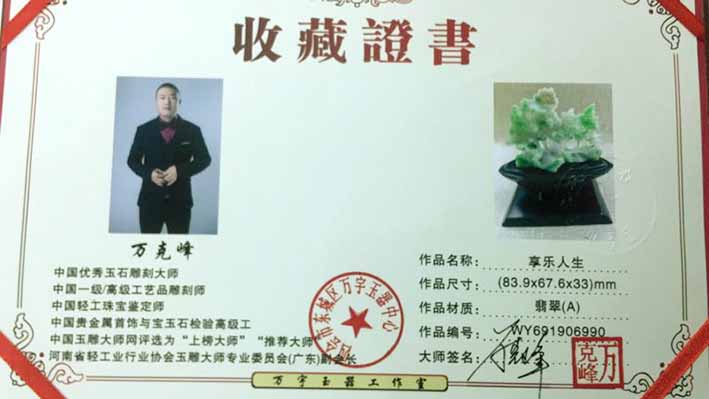 收藏證書
万克峰
中国优秀玉石雕刻大师
中国一级/高级工艺品雕刻师
中国轻工珠宝鉴定师
中国贵金属首饰与宝玉石检验高级工
中国玉雕大师网评选为“上榜大师”“推荐大师”
河南省轻工业行业协会玉雕大师专业委员会(广东)副会长
作品名称：享乐人生
作品尺寸：(83.9x67.6x33)mm
作品材质：翡翠(A)
作品编号：WY691906990
大师签名：
万克峰
市东城区万字玉器中心
万字玉器工作室